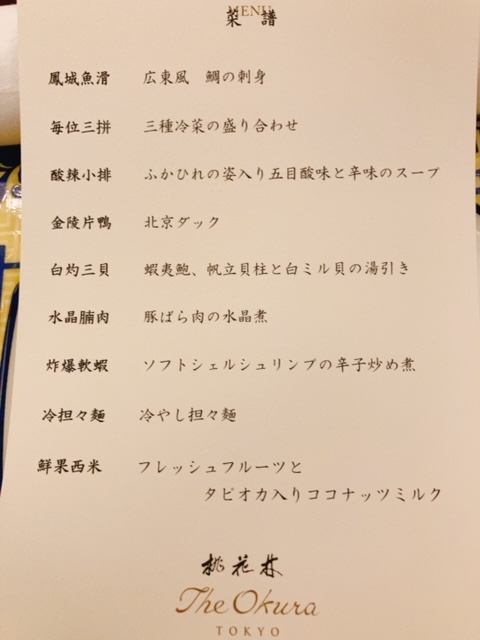 MENU
菜譜
鳳城魚滑 広東風 鯛の刺身
毎位三拼 三種冷菜の盛り合わせ
酸辣小排 ふかひれの姿入り五目酸味と辛味のスープ
金陵片鴨 北京ダック
白灼三貝 蝦夷鮑、帆立貝柱と白ミル貝の湯引き
水晶腩肉 豚ばら肉の水晶煮
炸爆軟蝦 ソフトシェルシュリンプの辛子炒め煮
冷担々麺 冷やし担々麺
鮮果西米 フレッシュフルーツと
タピオカ入りココナッツミルク
桃花林
The Okura
TOKYO